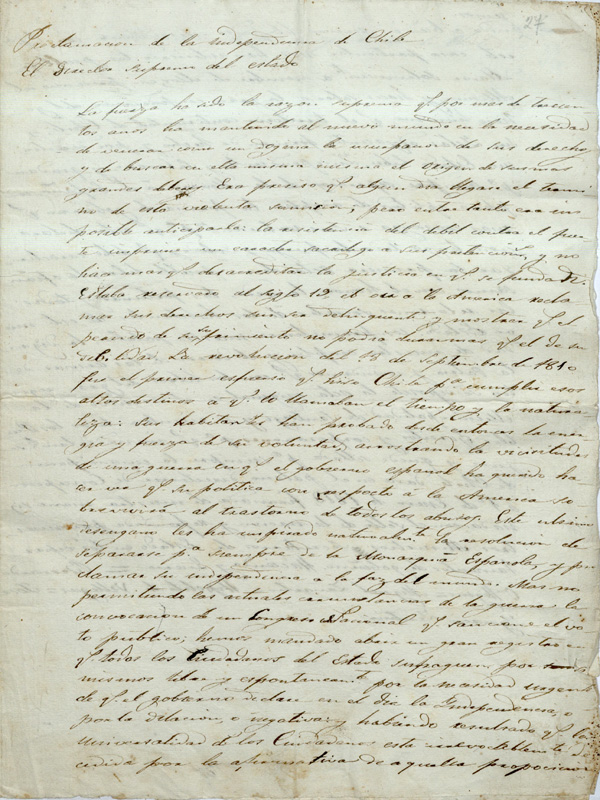 27
Proclamacion de la independencia de Chile
El Director supremo del estado
La fuerza ha sido la razon suprema qe. por mas de trescien
tos años ha mantenido al nuevo mundo en la necesidad
de venerar como un dogma la usurpacion de sus derechos
y de buscar en ella misma el origen de sus mas
grandes deberes. Era preciso qe. algun dia llegase el termi
no de esta violenta sumision; pero entre tanto era im
posible anticiparla: la resistencia del debil contra el fuer
te imprime un caracter sacrilego a sus pretenciones, y no
hace mas qe. desacreditar la justicia en qe. se funda
Estaba reservado al siglo 19 el oir a la America recla
mar sus derechos sin ser delinquente y mostrar qe. el
periodo de su sufrimiento no podia durar mas qe. el de su
debilidad. La revolucion del 18 de Septiembre de 1810
fue el primer esfuerzo qe. hiso Chile pa. cumplir esos
altos destinos a qe. lo llamaban el tiempo y la natura
leza: sus habitantes han probado desde entonces la ener
gia y fuerza de su voluntad, arrostrando la vicisitudes
de una guerra en qe. el gobierno español ha querido ha
cer ver qe. su politica con respecto a la America so
brevivirá al trastorno de todos los abusos. Este ultimo
desengaño les ha inspirado naturalmte. la resolucion de
separarse pa. siempre de la Monarquia Española, y pro
clamar su independencia a la faz del mundo. Mas no
permitiendo las actuales circunstancias de la guerra la
convocacion de un Congreso Nacional qe. sancione el vo
to publico; hemos mandado abrir un gran registro en
qe. todos los Ciudadanos del Estado sufraguen por
mismos libre y espontaneamte. por la necesidad urgente
de qe. el gobierno declare en el dia la Independencia, o
por la dilacion, o negativa; y habiendo resultado qe. la
universalidad de los Ciudadanos está
cedida por la afirmativa de aquella proposicion